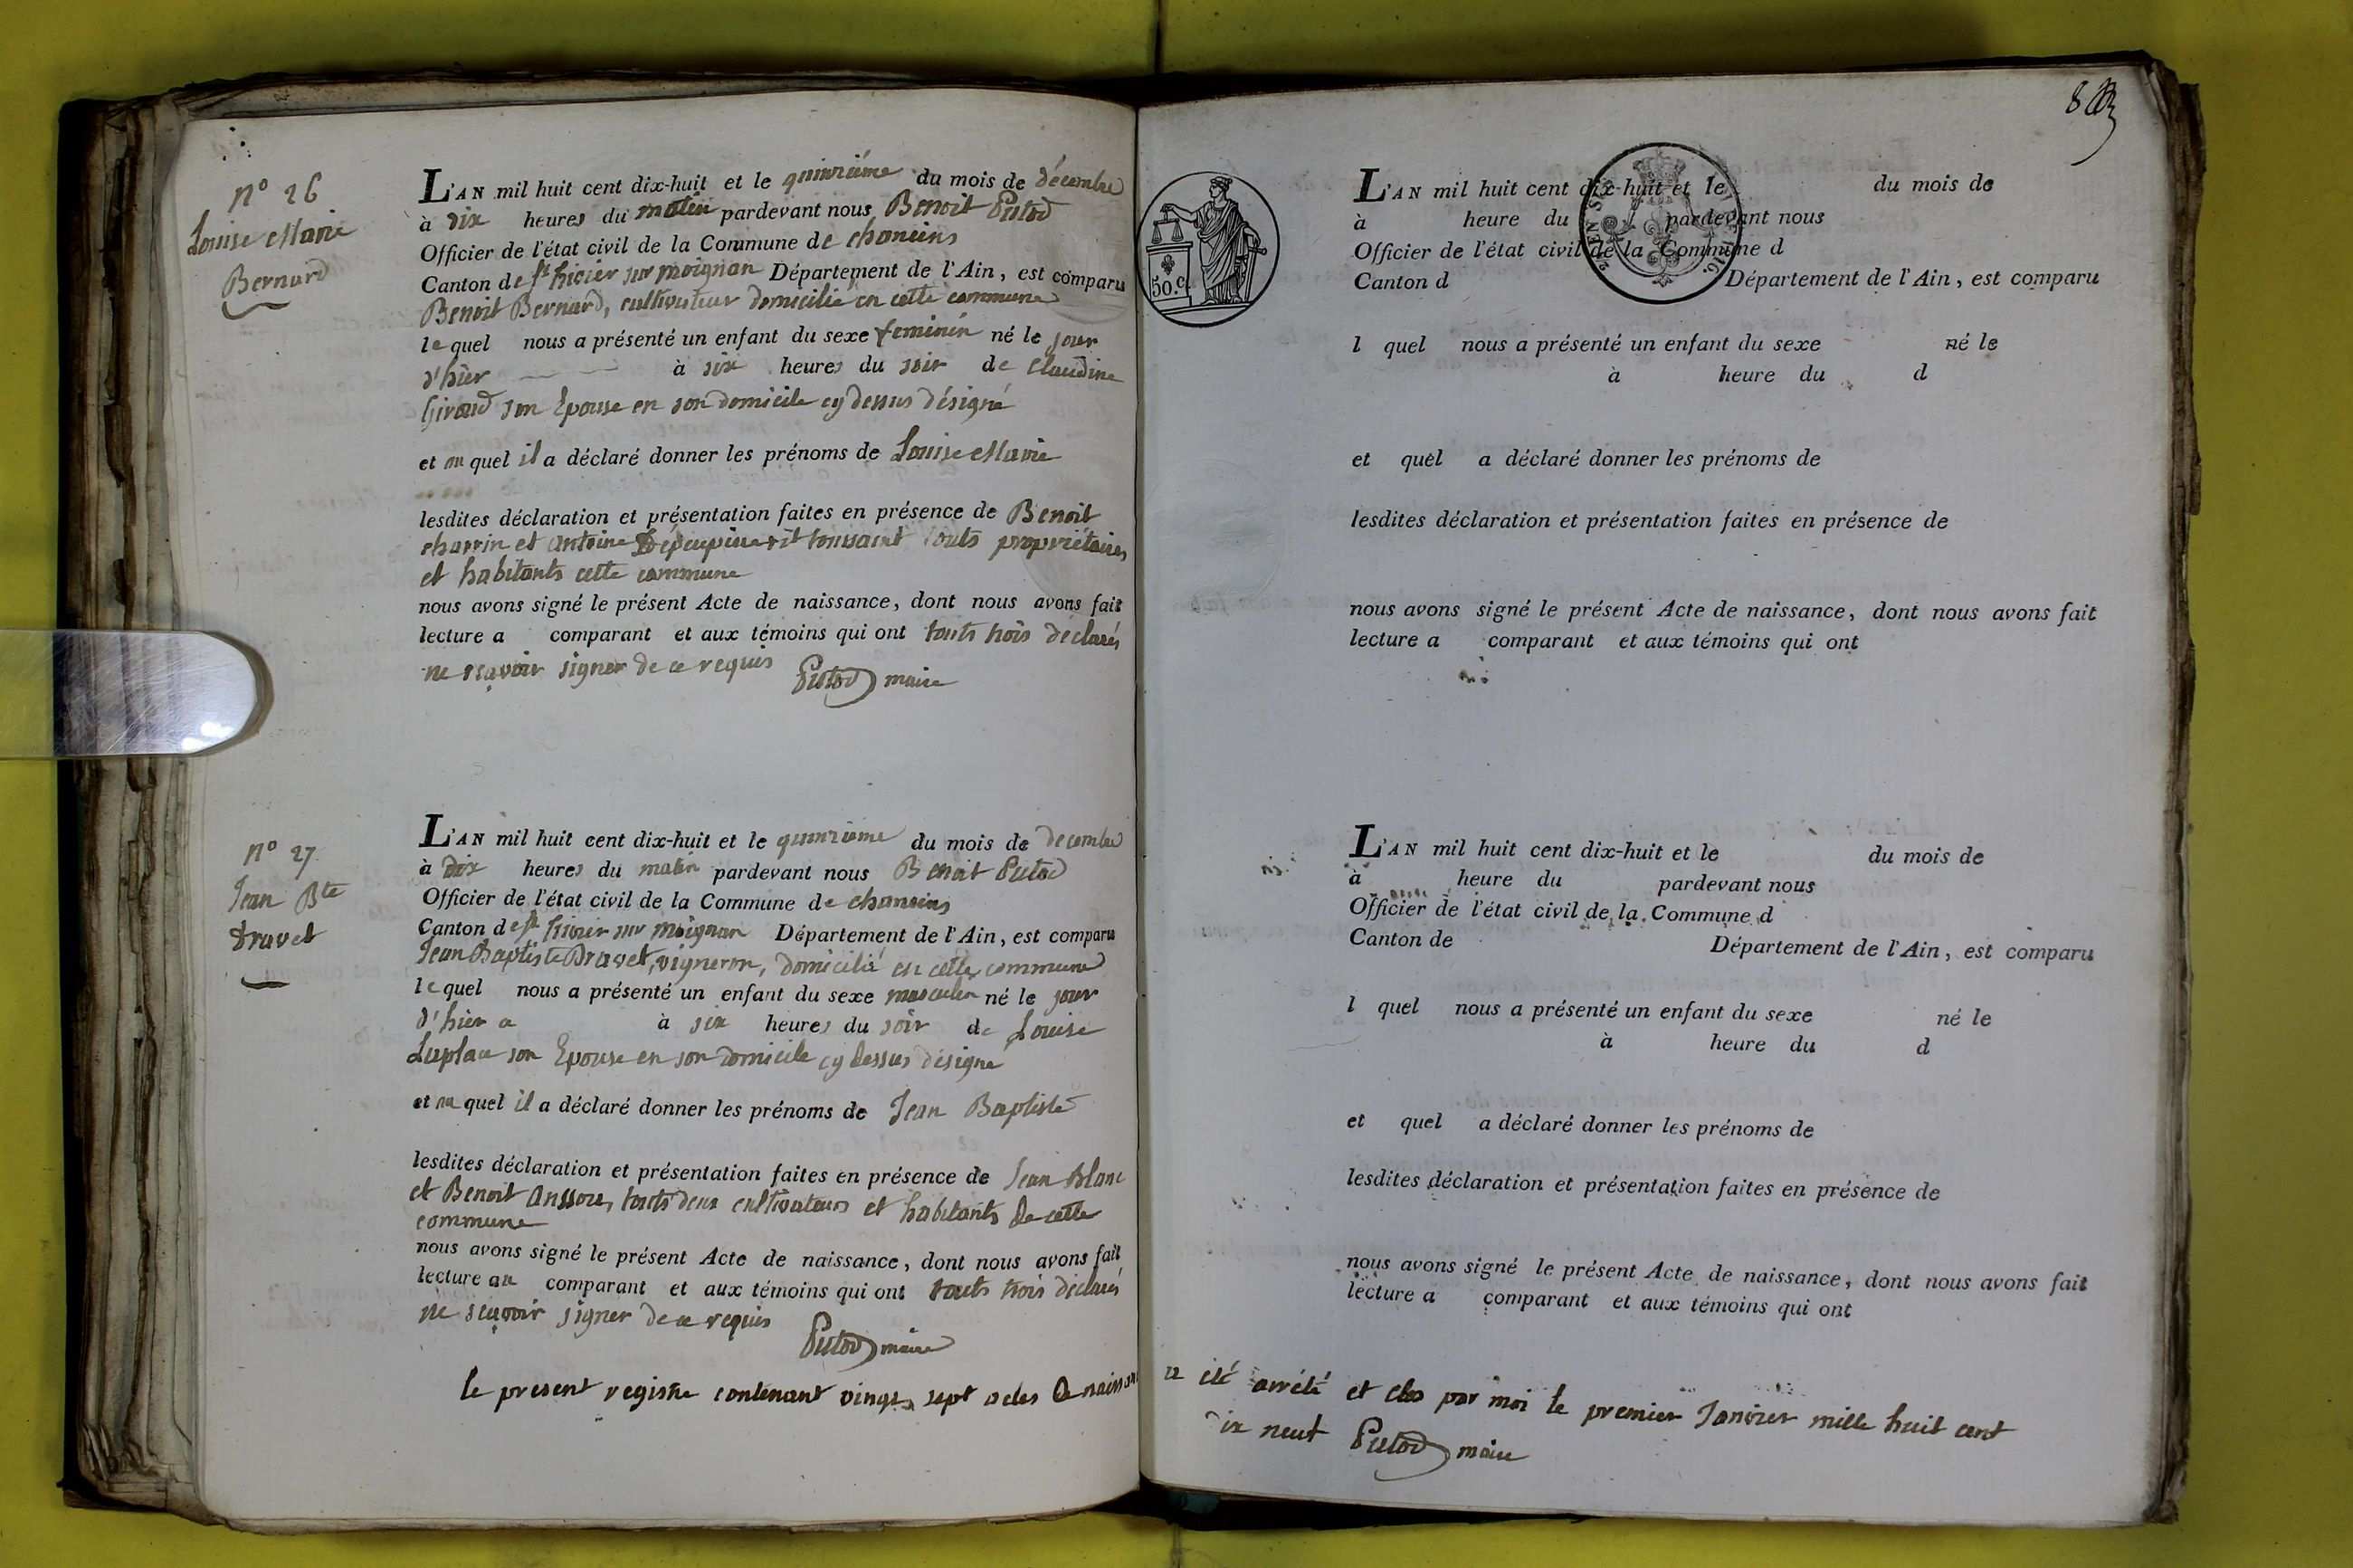 N° 26
Louise Marie
Bernard
L'AN mil huit cent dix-huit et le quinziéme du mois de décembre
à dix heures du matin pardevant nous Benoit Putod
Officier de l'état civil de la Commune de chaneins
Canton de St trivier sur moignan Département de l'Ain, est comparu
Benoit Bernard, cultivateur domicilié en cette commune
lequel nous a présenté un enfant du sexe feminin né le jour
d'hier à six heures du soir de Claudine
Giraud son Epouse en son domicile cy dessus désigné
et au quel il a déclaré donner les prénoms de Louise Marie
lesdites déclaration et présentation faites en présence de Benoit
et antoine toussaint touts propriétaires
et habitants cette commune
nous avons signé le présent Acte de naissance, dont nous avons fait
lecture a comparant et aux témoins qui ont touts trois déclarés
ne sçavoir signer de ce requis Putod maire
N° 27
Jean Bte
Dravet
L'AN mil huit cent dix-huit et le quinziéme du mois de decembre
à dix heures du matin pardevant nous Benoit Putod
Officier de l'état civil de la Commune de chaneins
Canton de St trivier sur moignan Département de l'Ain, est comparu
Jean Baptiste Dravet, vigneron, domicilié en cette commune
lequel nous a présenté un enfant du sexe masculin né le jour
d'hier a à six heures du soir de Louise
son Epouse en son domicile cy dessus désigné
et au quel il a déclaré donner les prénoms de Jean Baptiste
lesdites déclaration et présentation faites en présence de Jean Blanc
et Benoit touts deux cultivateurs et habitants de cette
commune
nous avons signé le présent Acte de naissance, dont nous avons fait
lecture au comparant et aux témoins qui ont touts trois déclarés
ne sçavoir signer de ce requis
Putod maire
le present registre contenant vingt sept actes de naissance
50.c.
L'AN mil huit cent dix-huit et le du mois de
à heure du pardevant nous
Officier de l'état civil de la Commune d
Canton d Département de l'Ain, est comparu
l quel nous a présenté un enfant du sexe né le
à heure du d
et quel a déclaré donner les prénoms de
lesdites déclaration et présentation faites en présence de
nous avons signé le présent Acte de naissance, dont nous avons fait
lecture a comparant et aux témoins qui ont
L'AN mil huit cent dix-huit et le du mois de
à heure du pardevant nous
Officier de l'état civil de la Commune d
Canton de Département de l'Ain, est comparu
l quel nous a présenté un enfant du sexe né le
à heure du d
et quel a déclaré donner les prénoms de
lesdites déclaration et présentation faites en présence de
nous avons signé le présent Acte de naissance, dont nous avons fait
lecture a comparant et aux témoins qui ont
a été arrété et clos par moi le premier Janvier mille huit cent
dix neuf Putod maire